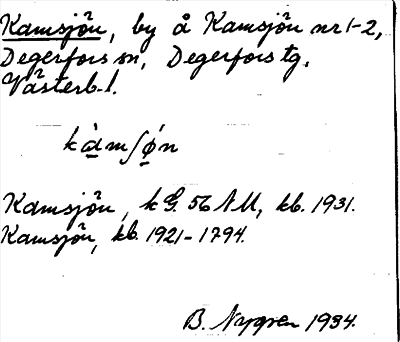 Kamsjön, by å Kamsjön nr 1-2,
Degerfors sn, Degerfors tg,
Västerb. l.
kàmʃǿn
Kamsjön, k G. 56 NM, kb. 1931.
Kamsjön, kb. 1921-1794.
B. Nygren 1934.